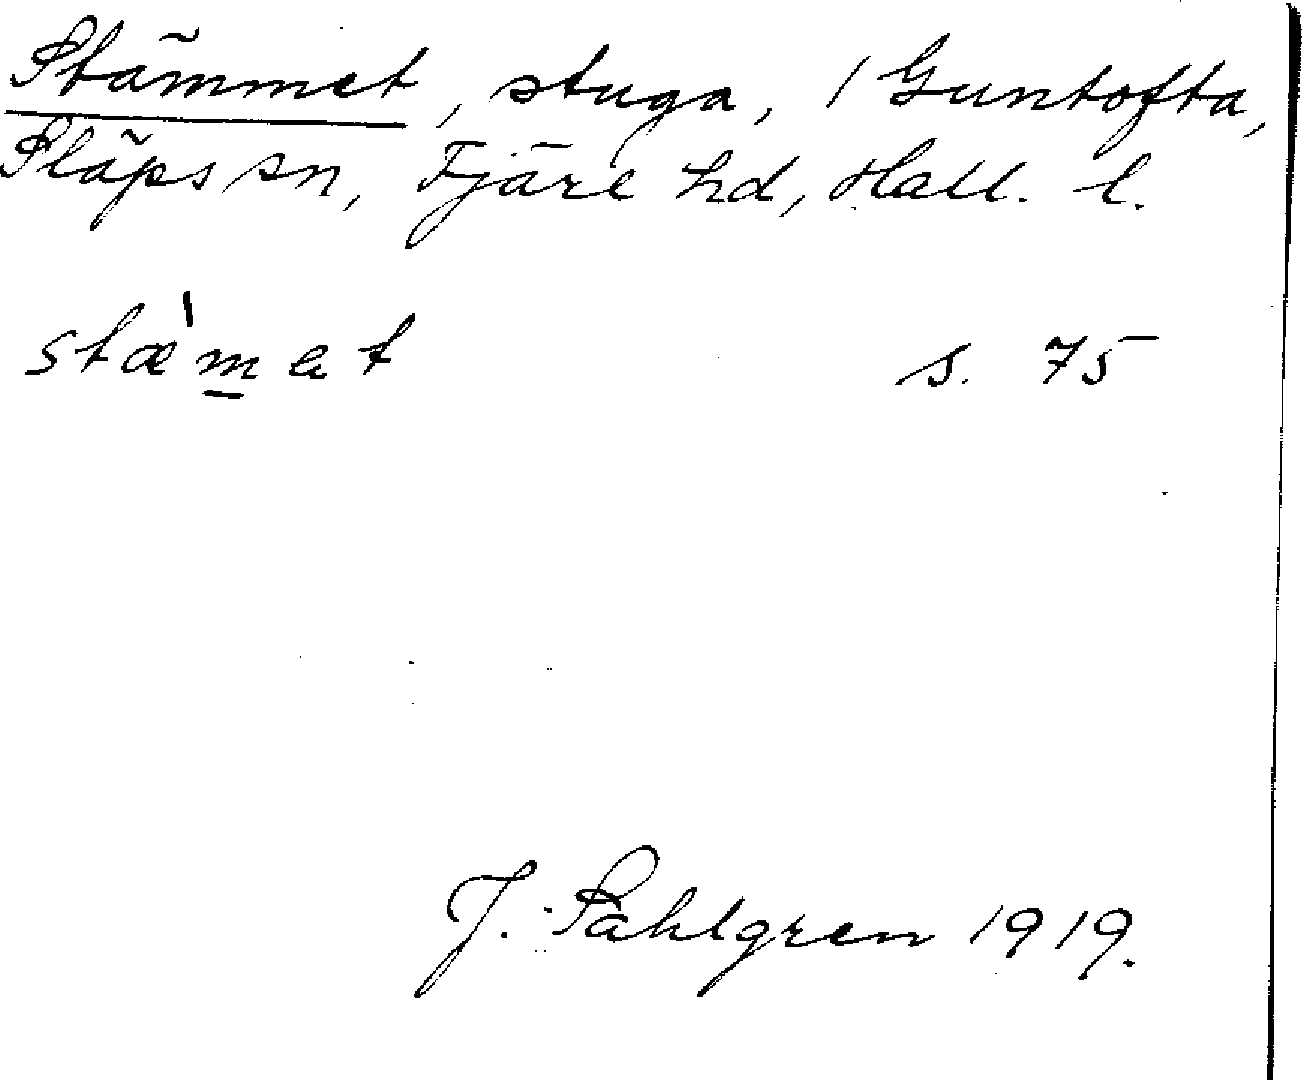 Stämmet, stuga, 1 Guntofta,
Släps sn, Fjäre hd, Hall. l.
stæ̀m̲et s. 75
J. Sahlgren 1919.